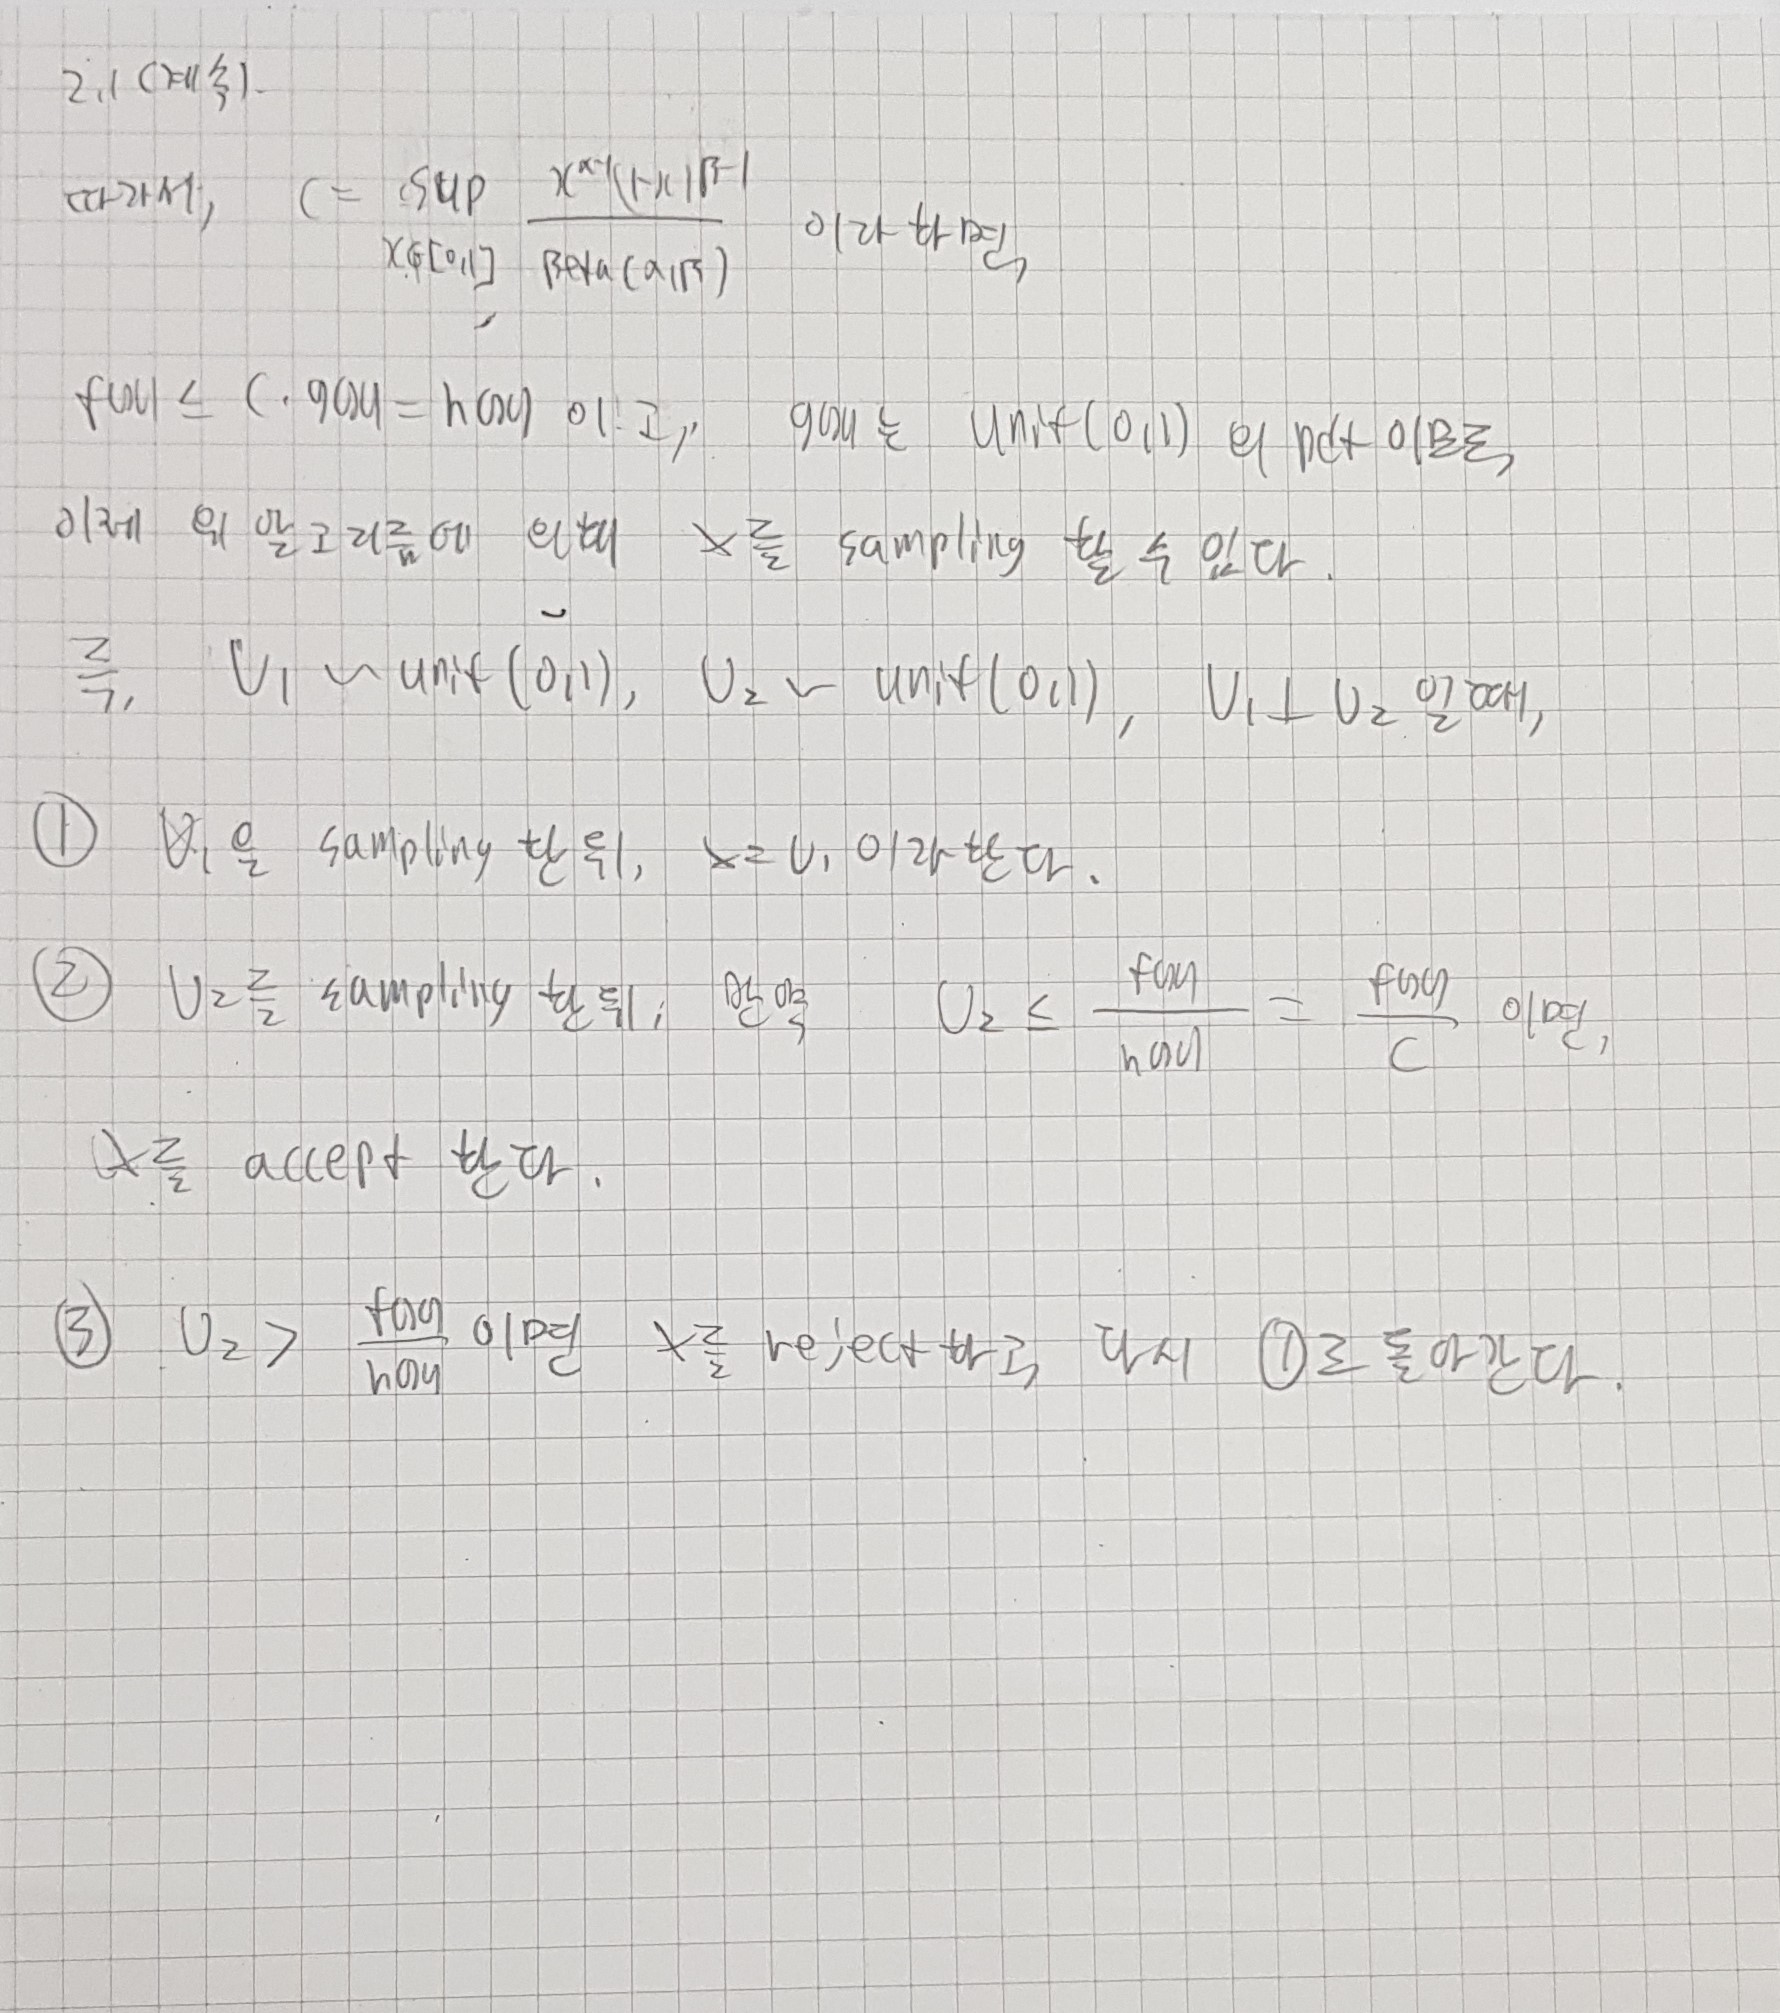 2.1 (계속).
따라서, C = sup x∈[0,1] x^{α-1}(1-x)^{β-1} / Beta(α,β) 이라 하면,
f(x) ≤ C·g(x) = h(x) 이고, g(x)는 Unif(0,1) 의 pdf 이므로,
이제 위 알고리즘에 의해 X를 sampling 할 수 있다.
즉, U₁ ~ unif(0,1), U₂ ~ unif(0,1), U₁ ⊥ U₂ 일 때,
① U₁을 sampling 한 뒤, x = U₁ 이라 한다.
② U₂를 sampling 한 뒤, 만약 U₂ ≤ f(x)/h(x) = f(x)/C 이면,
X를 accept 한다.
③ U₂ > f(x)/h(x) 이면 X를 reject 하고, 다시 ①로 돌아간다.